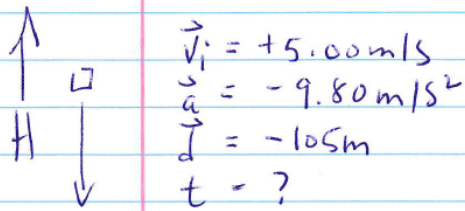 v⃗ᵢ = +5.00m/s
a⃗ = -9.80m/s²
H
d⃗ = -105m
t = ?